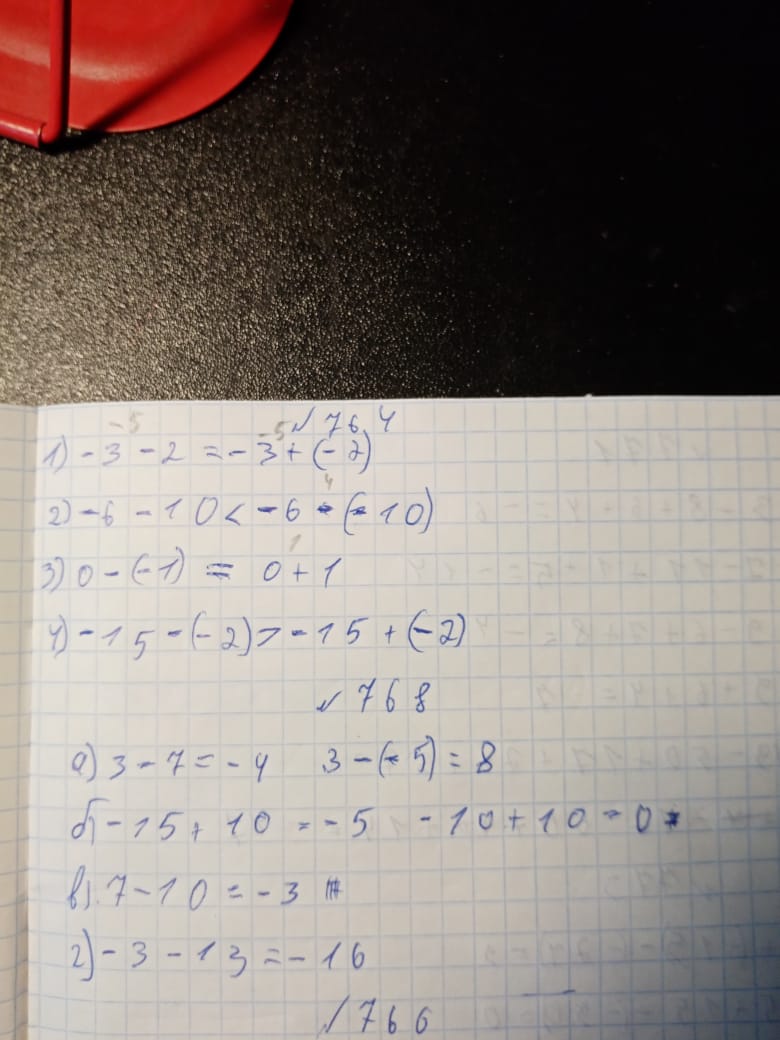 № 764
1) -3 - 2 = -3 + (-2)
2) -6 - 10 < -6 - (-10)
3) 0 - (-1) = 0 + 1
4) -15 - (-2) > -15 + (-2)
№ 768
а) 3 - 7 = -4 3 - (-5) = 8
б) -15 + 10 = -5 -10 + 10 = 0
в) 7 - 10 = -3
г) -3 - 13 = -16
№ 766